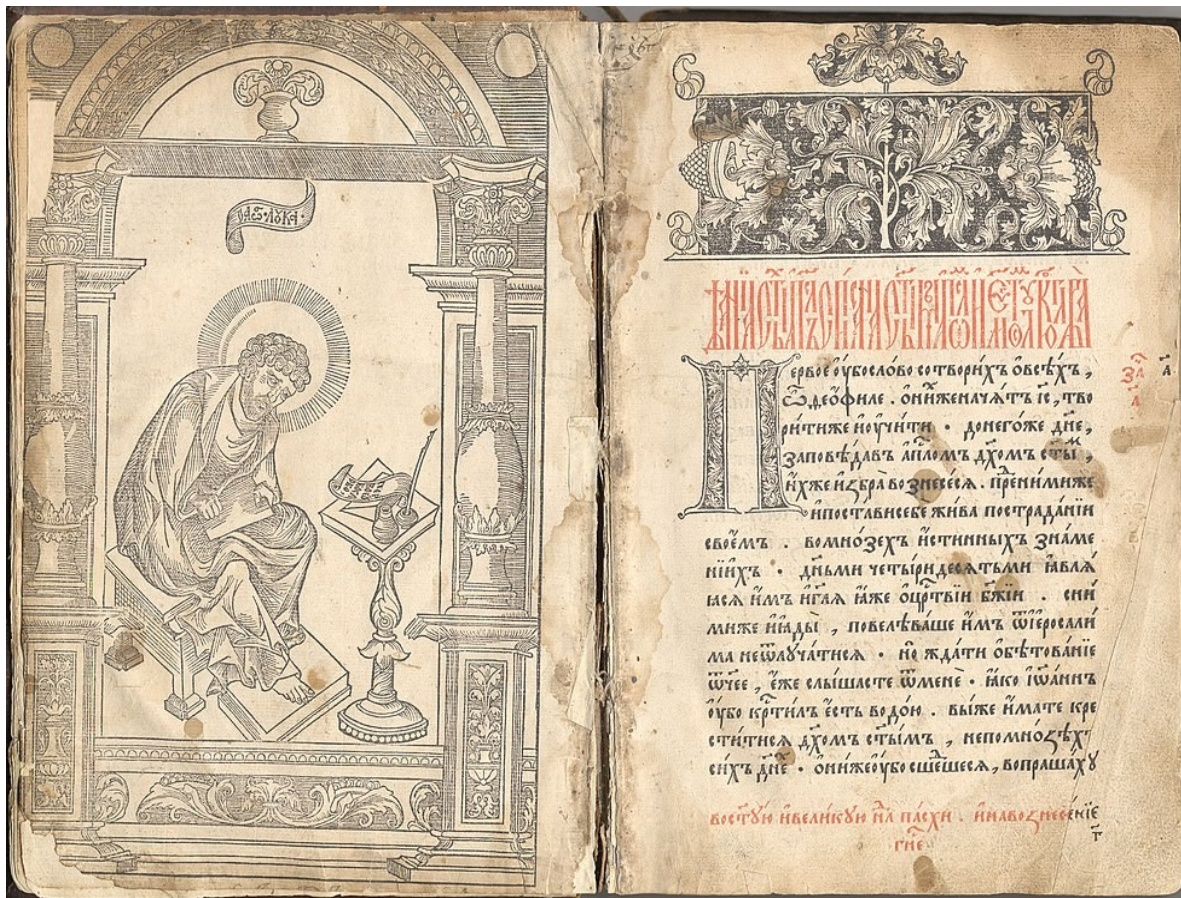 ЛУКА
ервое оу҆бо сло́во сотвори́хъ ѻ҆ всѣ́хъ,
ѽ ѳео́филе . ѻ҆ ни́хже начѧ́тъ і҆с҃, тво
ри́ти же и҆ оу҆чи́ти · до него́же дн҃е,
заповѣ́давъ а҆пⷭ҇ломъ дх҃омъ ст҃ыⷨ,
и҆́хже и҆збра̀ вознесе́сѧ . пред ни́миже
и҆ поста́ви себе жи́ва по страда́нїи
свое́мъ . во мно́зехъ и҆́стинныхъ зна́ме
нїихъ · дн҃ьми четы́ридесѧтьми ꙗ҆влѧ́
ꙗсѧ и҆̀мъ и҆ гл҃ѧ ꙗ҆́же ѻ҆ црⷭ҇твїи бж҃їи . с ни́
миже и҆ ꙗ҆ды̀ , повелѣва́ше и҆̀мъ ѿ і҆ероⷭали́
ма не ѿлꙋча́тисѧ · но жда́ти ѻ҆бѣтова́нїе
ѿч҃ее , є҆́же слы́шасте ѿ менѐ · ꙗ҆́ко і҆ѡа́ннъ
оу҆́бо крⷭ҇ти́лъ є҆́сть водо́ю . вы́ же и҆́мате кре
сти́тисѧ дх҃омъ ст҃ы́мъ , не по мно́ѕѣхъ
си́хъ дн҃е · ѻ҆ни́ же оу҆́бо сше́дшесѧ, вопраша́хꙋ
во ст҃ꙋ́ю и҆ вели́кꙋю нⷣлю па́схи . и҆ на вознесе́нїе
гн҃е